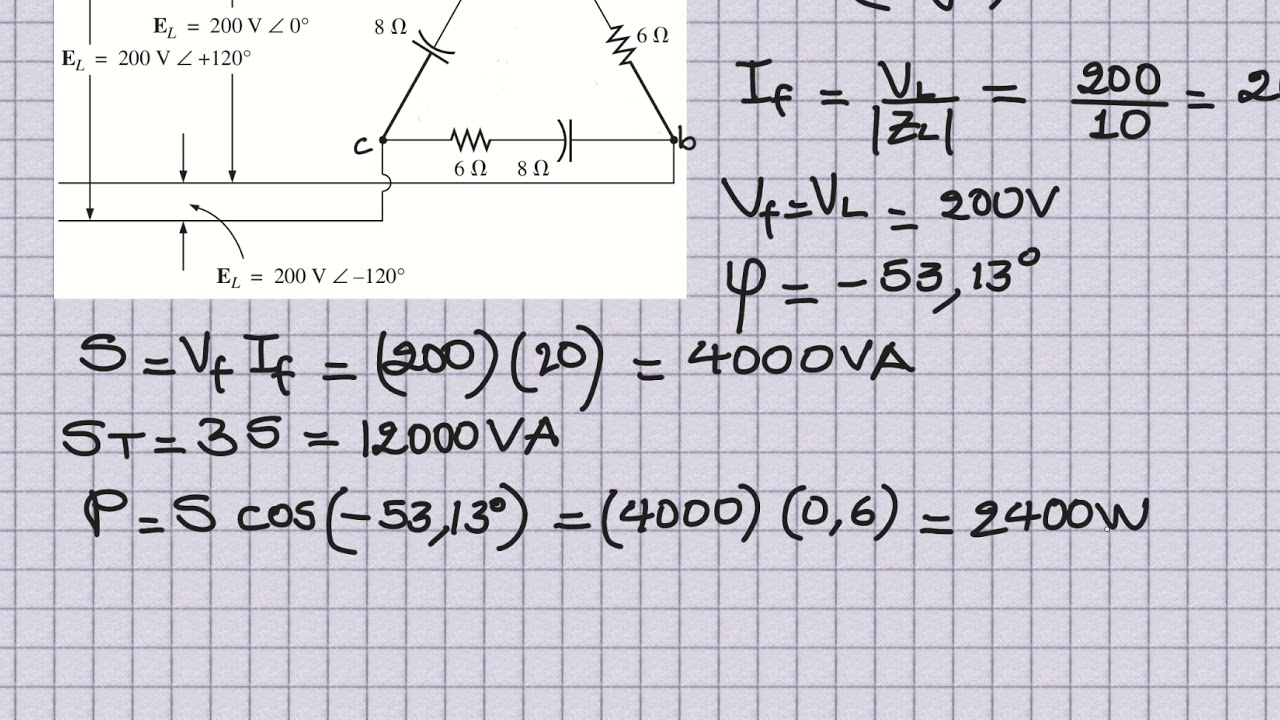 E_L = 200 V ∠ 0°
E_L = 200 V ∠ +120°
8 Ω
6 Ω
c
b
6 Ω 8 Ω
E_L = 200 V ∠ –120°
I_f = V_L / |Z_L| = 200 / 10 =
V_f = V_L = 200V
φ = - 53,13°
S = V_f I_f = (200) (20) = 4000VA
S_T = 3S = 12000VA
P = S cos(-53,13°) = (4000) (0,6) = 2400W